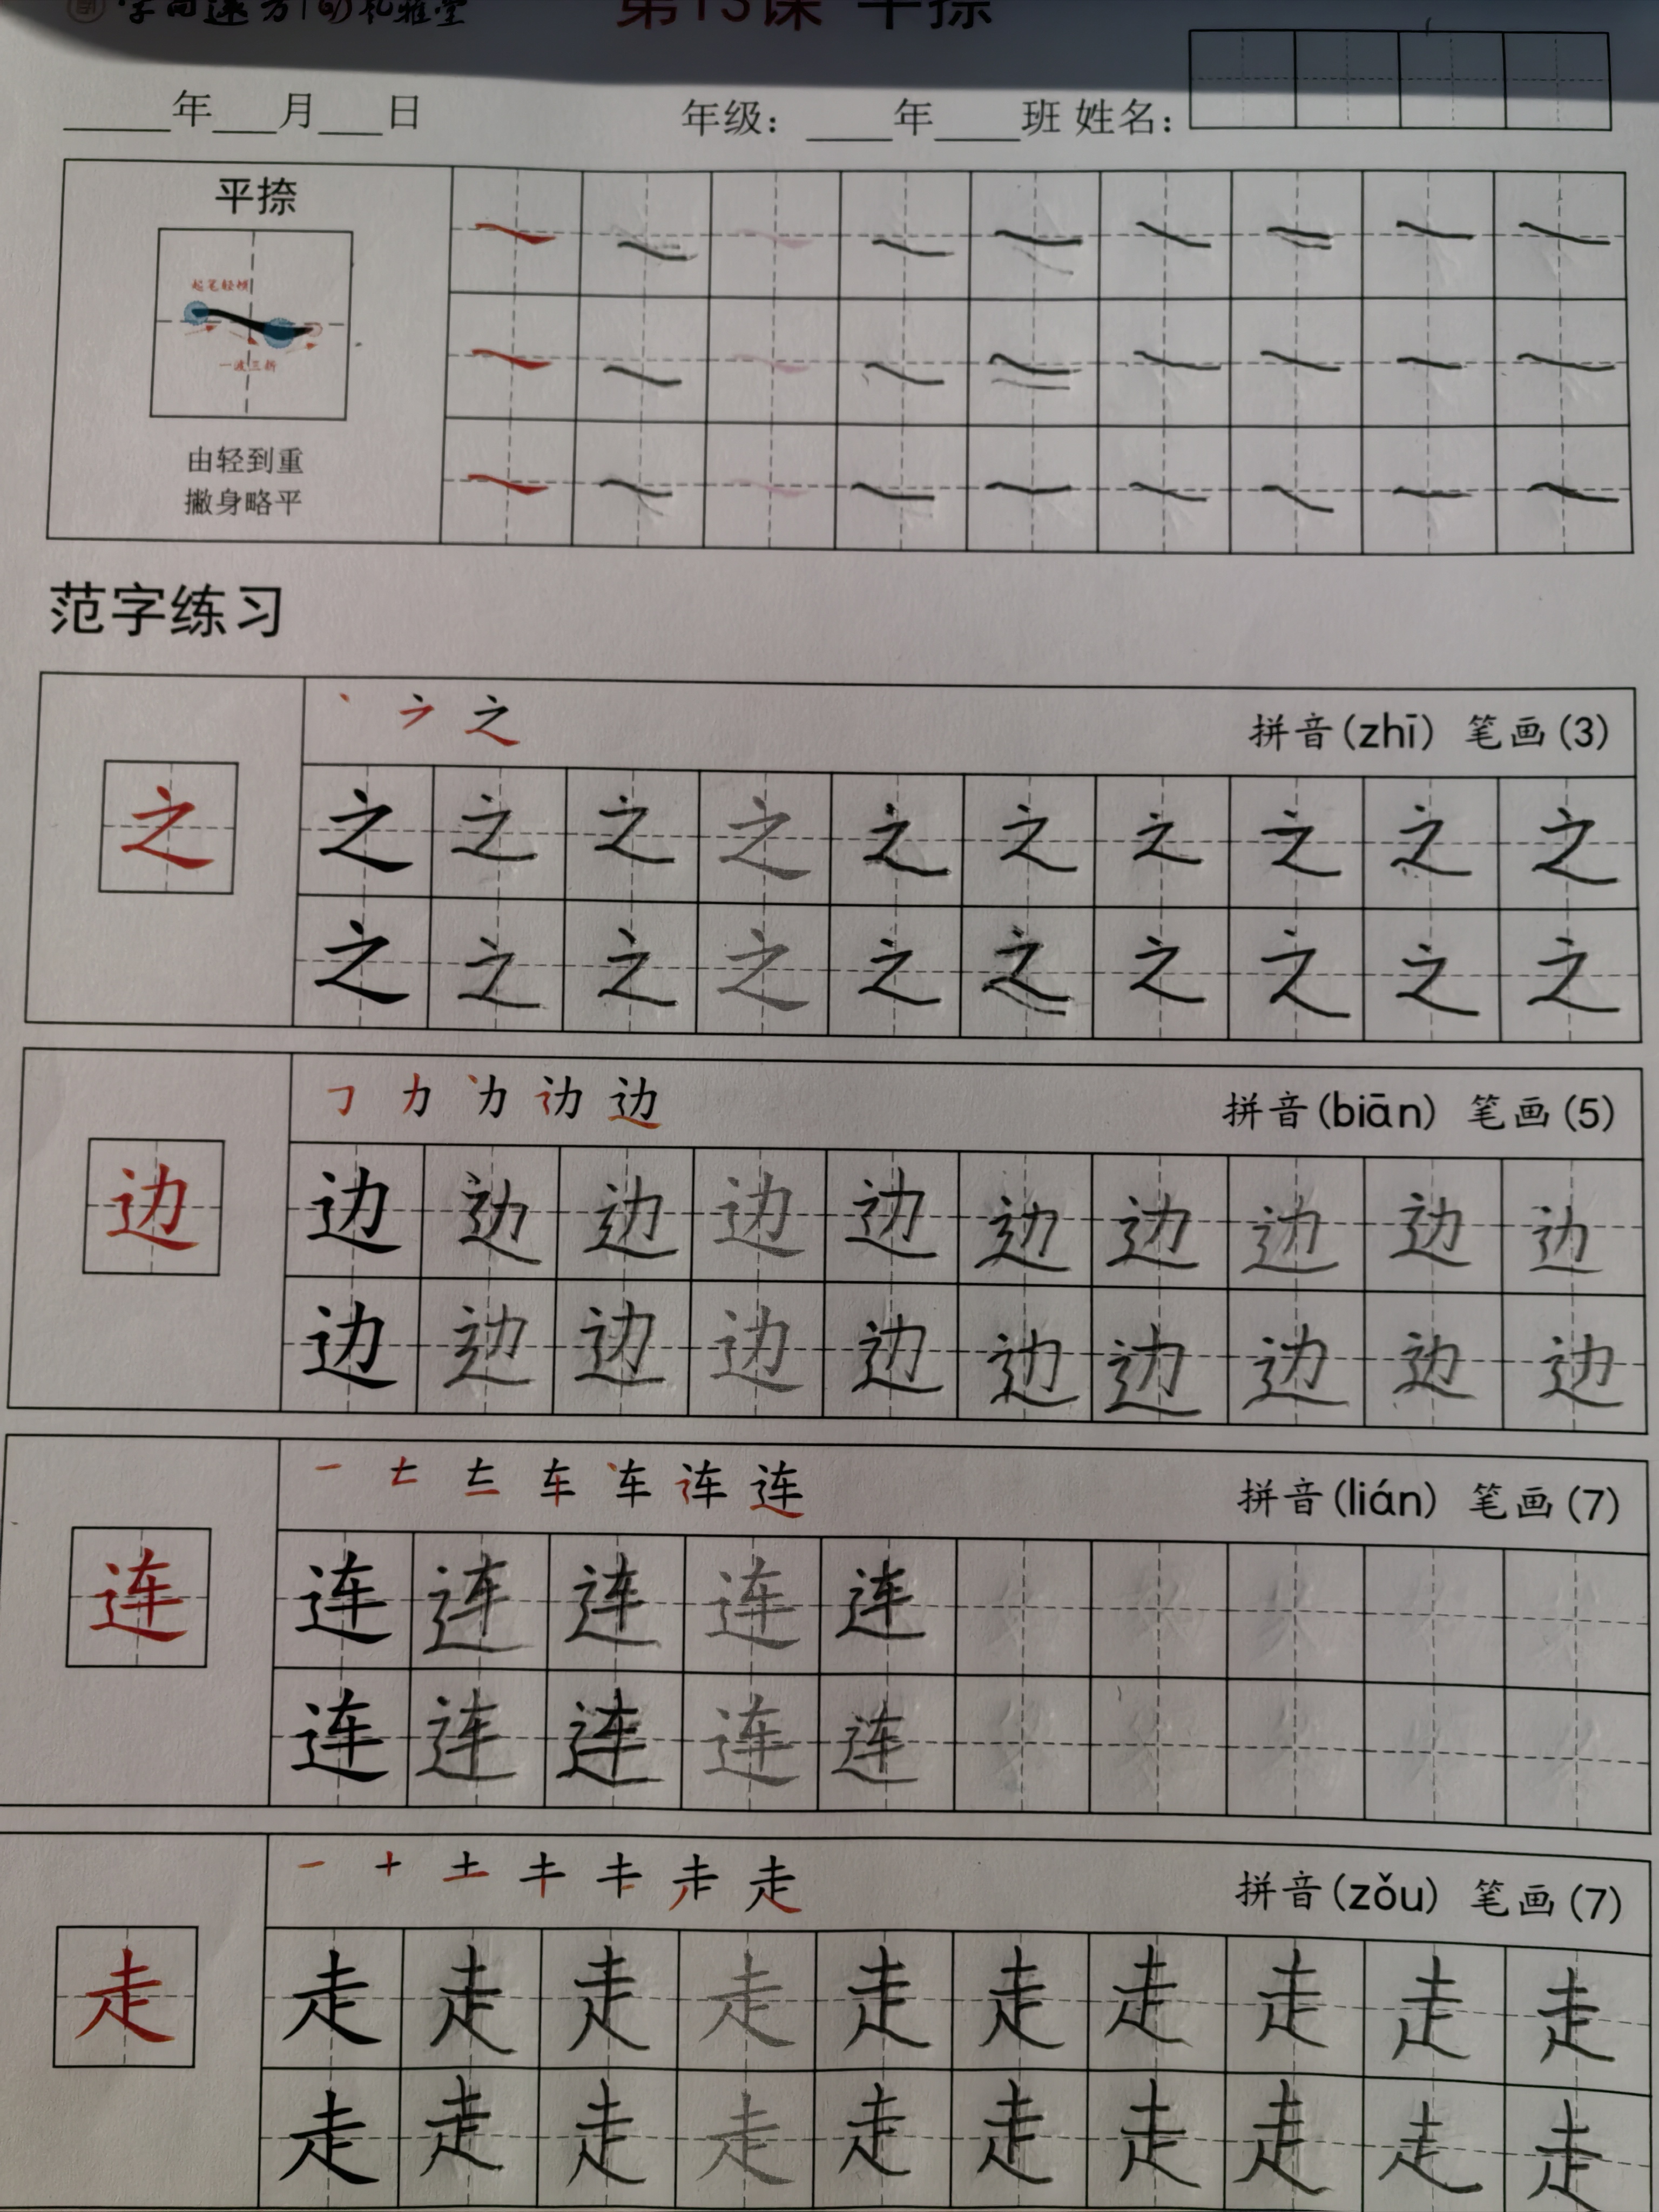 第13课 平捺
年 月 日 年级： 年 班 姓名：
平捺
起笔轻顿
一波三折
由轻到重
撇身略平
范字练习
拼音(zhī) 笔画(3)
之 之 之 之 之 之 之 之 之 之 之
之 之 之 之 之 之 之 之 之 之
拼音(biān) 笔画(5)
边 边 边 边 边 边 边 边 边 边 边
边 边 边 边 边 边 边 边 边 边
拼音(lián) 笔画(7)
连 连 连 连 连 连
连 连 连 连 连
拼音(zǒu) 笔画(7)
走 走 走 走 走 走 走 走 走 走 走
走 走 走 走 走 走 走 走 走 走